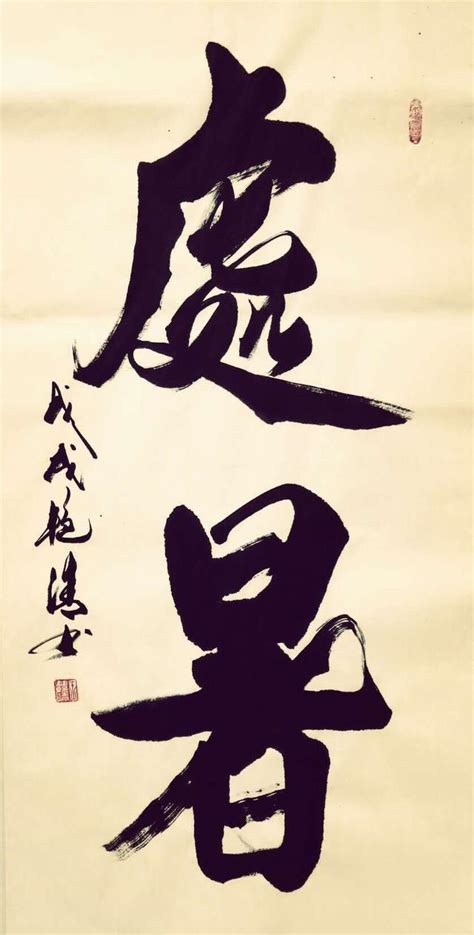 處暑
戊戌艳清书